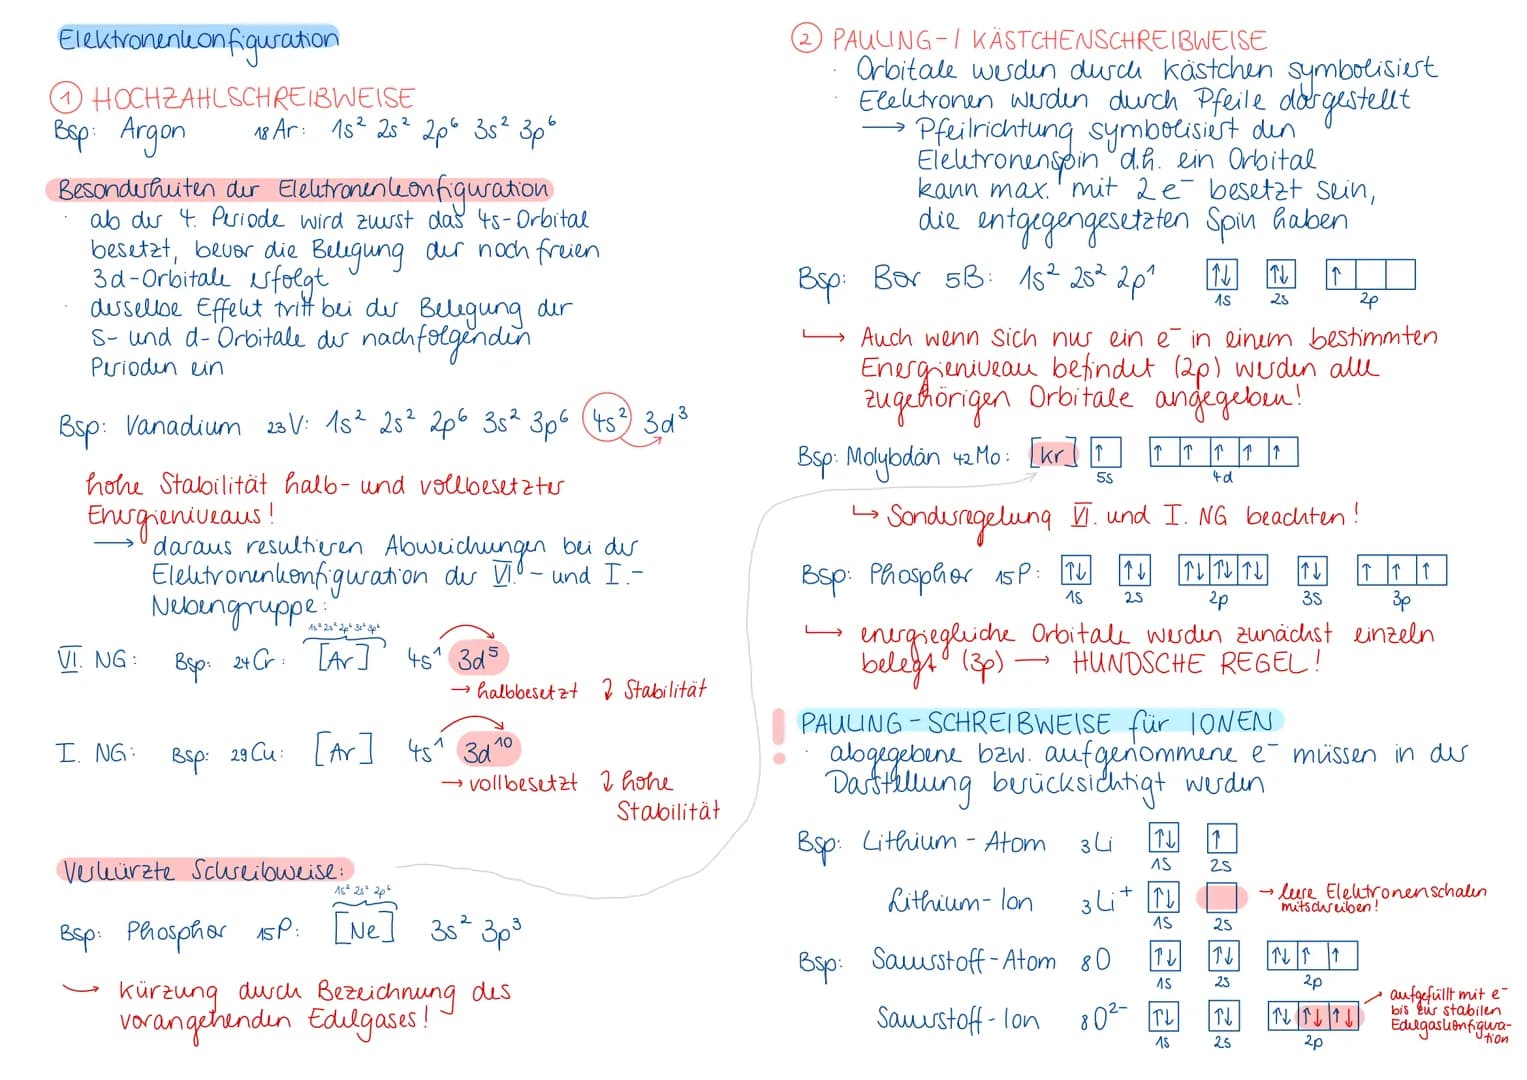 Elektronenkonfiguration
① HOCHZAHLSCHREIBWEISE
Bsp: Argon ₁₈Ar: 1s² 2s² 2p⁶ 3s² 3p⁶
Besonderheiten der Elektronenkonfiguration
· ab der 4. Periode wird zuerst das 4s-Orbital
besetzt, bevor die Belegung der noch freien
3d-Orbitale erfolgt
· derselbe Effekt tritt bei der Belegung der
s- und d-Orbitale der nachfolgenden
Perioden ein
Bsp: Vanadium ₂₃V: 1s² 2s² 2p⁶ 3s² 3p⁶ 4s² 3d³
hohe Stabilität halb- und vollbesetzter
Energieniveaus!
→ daraus resultieren Abweichungen bei der
Elektronenkonfiguration der VI.- und I.-
Nebengruppe:
1s² 2s² 2p⁶ 3s² 3p⁶
VI. NG: Bsp: ₂₄Cr: [Ar] 4s¹ 3d⁵
→ halbbesetzt ↷ Stabilität
I. NG: Bsp: ₂₉Cu: [Ar] 4s¹ 3d¹⁰
→ vollbesetzt ↷ hohe
Stabilität
Verkürzte Schreibweise:
1s² 2s² 2p⁶
Bsp: Phosphor ₁₅P: [Ne] 3s² 3p³
→ kürzung durch Bezeichnung des
vorangehenden Edelgases!
② PAULING-/ KÄSTCHENSCHREIBWEISE
· Orbitale werden durch Kästchen symbolisiert
· Elektronen werden durch Pfeile dargestellt
→ Pfeilrichtung symbolisiert den
Elektronenspin d.h. ein Orbital
kann max. mit 2 e⁻ besetzt sein,
die entgegengesetzten Spin haben
Bsp: Bor 5B: 1s² 2s² 2p¹ ↑↓ ↑↓ ↑
1s 2s 2p
↳ Auch wenn sich nur ein e⁻ in einem bestimmten
Energieniveau befindet (2p) werden alle
zugehörigen Orbitale angegeben!
Bsp: Molybdän ₄₂Mo: [Kr] ↑ ↑ ↑ ↑ ↑ ↑
5s 4d
↳ Sonderregelung VI. und I. NG beachten!
Bsp: Phosphor ₁₅P: ↑↓ ↑↓ ↑↓ ↑↓ ↑↓ ↑↓ ↑ ↑ ↑
1s 2s 2p 3s 3p
↳ energiegliche Orbitale werden zunächst einzeln
belegt (3p) → HUNDSCHE REGEL!
! PAULING-SCHREIBWEISE für IONEN
· abgegebene bzw. aufgenommene e⁻ müssen in der
Darstellung berücksichtigt werden
Bsp: Lithium-Atom ₃Li ↑↓ ↑
1s 2s
Lithium-Ion ₃Li⁺ ↑↓ → leere Elektronenschalen
mitschreiben!
1s 2s
Bsp: Sauerstoff-Atom ₈O ↑↓ ↑↓ ↑↓ ↑ ↑
1s 2s 2p
Sauerstoff-Ion ₈O²⁻ ↑↓ ↑↓ ↑↓ ↑↓ ↑↓
1s 2s 2p
→ aufgefüllt mit e⁻
bis zur stabilen
Edelgaskonfigura-
tion